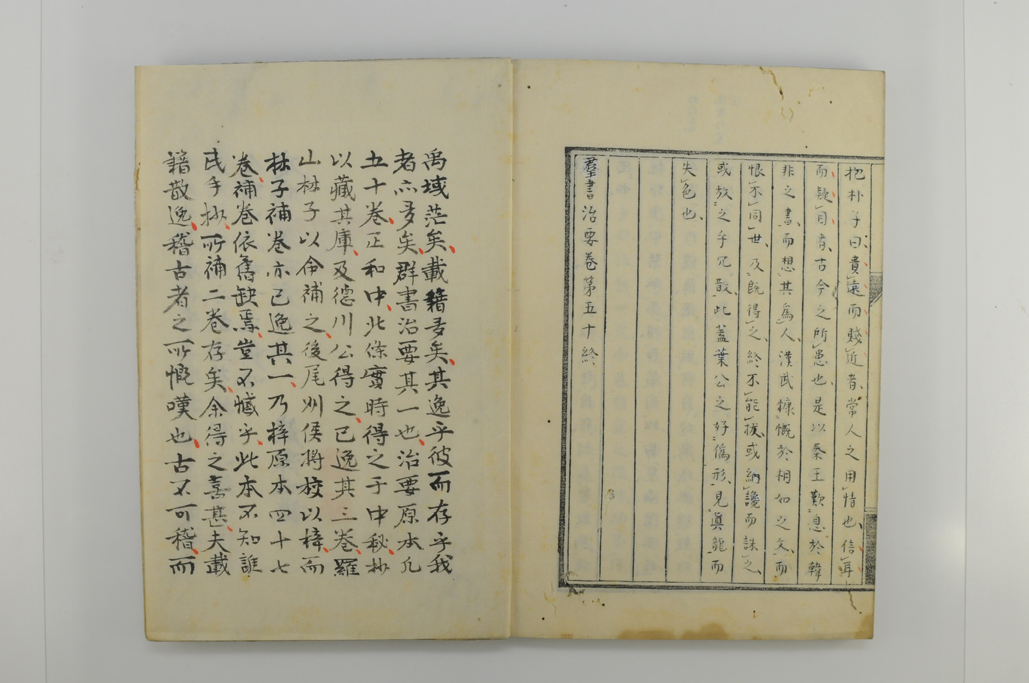 抱朴子曰貴遠而賤近者常人之用情也信耳
而疑目者古今之所患也是以秦王歎息於韓
非之書而想其爲人漢武慷慨於相如之文而
恨不同世及旣得之終不能拔或納讒而誅之
或放之乎冗散此蓋葉公之好僞形見眞龍而
失色也
羣書治要卷第五十終
禹域茫矣載籍多矣其逸乎彼而存乎我
者亦多矣群書治要其一也治要原本凡
五十卷正和中北條實時得之于中秘抄
以藏其庫及德川公得之已逸其三卷羅
山林子以命補之後尾州侯將校以梓而
林子補卷亦已逸其一乃梓原本四十七
卷補卷依舊缺焉豈不憾乎此本不知誰
氏手抄所補二卷存矣余得之喜甚夫載
籍散逸稽古者之所慨嘆也古不可稽而